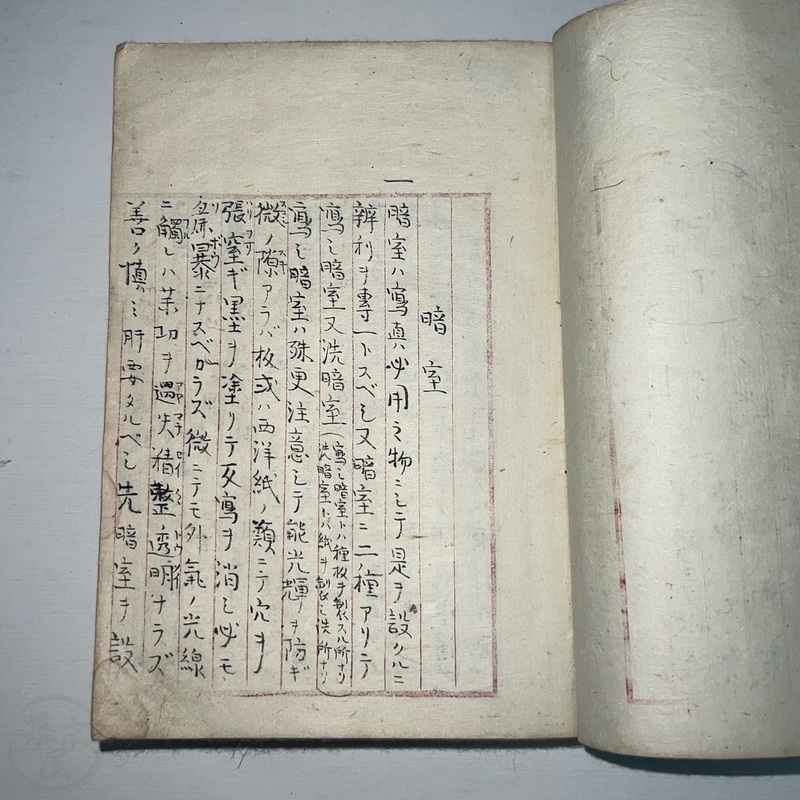 暗室
一
暗室ハ寫真必用之物ニシテ是ヲ設クルニ
辨利ヲ專一トスベシ又暗室ニ二ノ種アリテ
寫シ暗室又洗暗室(寫シ暗室トハ種板ヲ製スル所ナリ
洗暗室トハ紙ヲ製シ洗所ナリ
寫シ暗室ハ殊更注意シテ能光輝ヲ防ギ
微ノ隙アラバ板或ハ西洋紙ノ類ニテ穴ヲ
張窒ギ黒ヲ塗リテ反寫ヲ消シ必モ
暴ニナスベカラズ微ニテモ外氣ノ光線
ニ觸レハ業功ヲ過失精整透明ナラズ
善ク慎ミ肝要タルベシ先暗室ヲ設